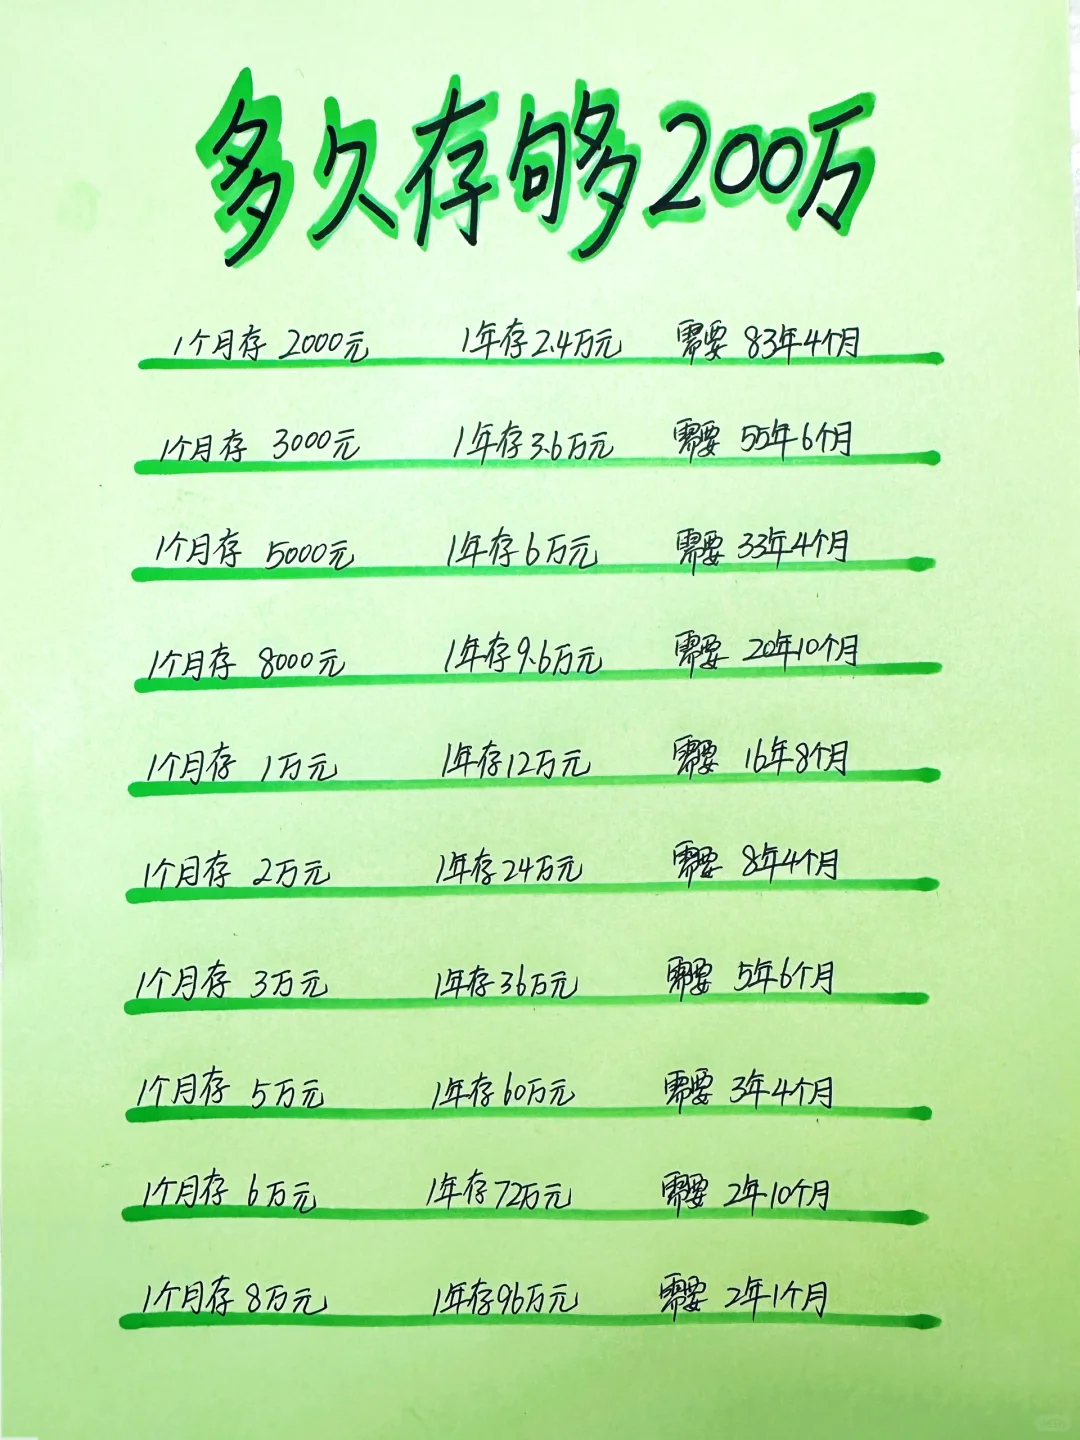 多久存够200万
1个月存 2000元 1年存2.4万元 需要 83年4个月
1个月存 3000元 1年存3.6万元 需要 55年6个月
1个月存 5000元 1年存6万元 需要 33年4个月
1个月存 8000元 1年存9.6万元 需要 20年10个月
1个月存 1万元 1年存12万元 需要 16年8个月
1个月存 2万元 1年存24万元 需要 8年4个月
1个月存 3万元 1年存36万元 需要 5年6个月
1个月存 5万元 1年存60万元 需要 3年4个月
1个月存 6万元 1年存72万元 需要 2年10个月
1个月存 8万元 1年存96万元 需要 2年1个月